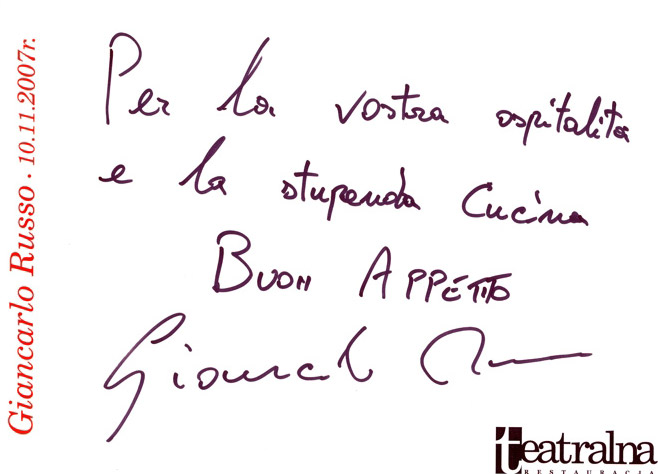 Per la vostra ospitalità
e la stupenda Cucina
BUON APPETITO
Giancarlo Russo
Giancarlo Russo · 10.11.2007r.
teatralna
RESTAURACJA